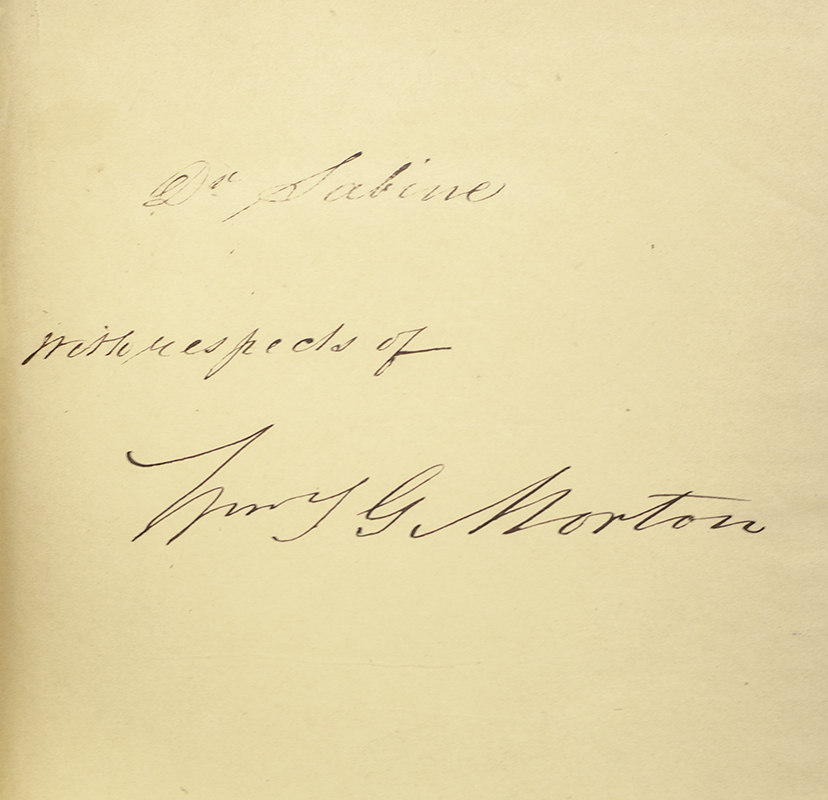 Dr Sabine
With respects of
Wm T G Morton